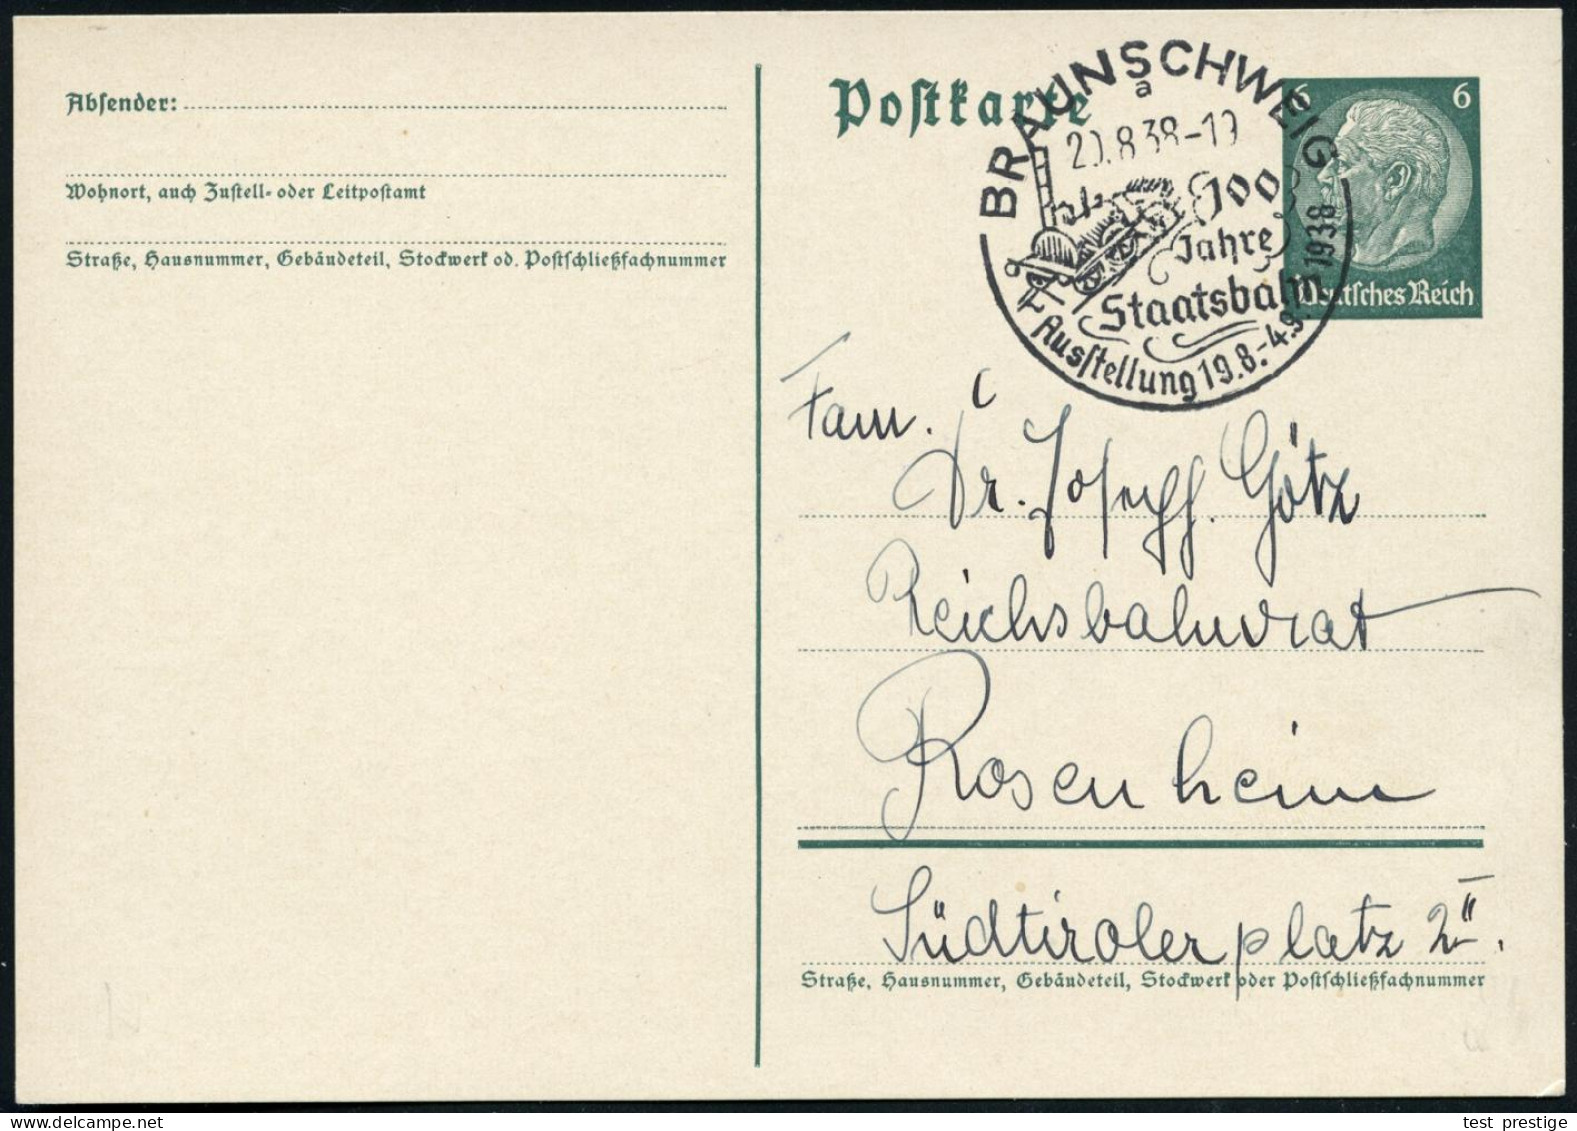 Absender:
Wohnort, auch Zustell- oder Leitpostamt
Straße, Hausnummer, Gebäudeteil, Stockwerk od. Postschließfachnummer
Postkarte
BRAUNSCHWEIG
a
20.8.38-19
100
Jahre
Staatsbahn
Ausstellung 19.8.-4.9. 1938
6 6
Deutsches Reich
Fam.
Dr. Joseph Götz
Reichsbahnrat
Rosenheim
Südtirolerplatz 2 II.
Straße, Hausnummer, Gebäudeteil, Stockwerk oder Postschließfachnummer
test prestige